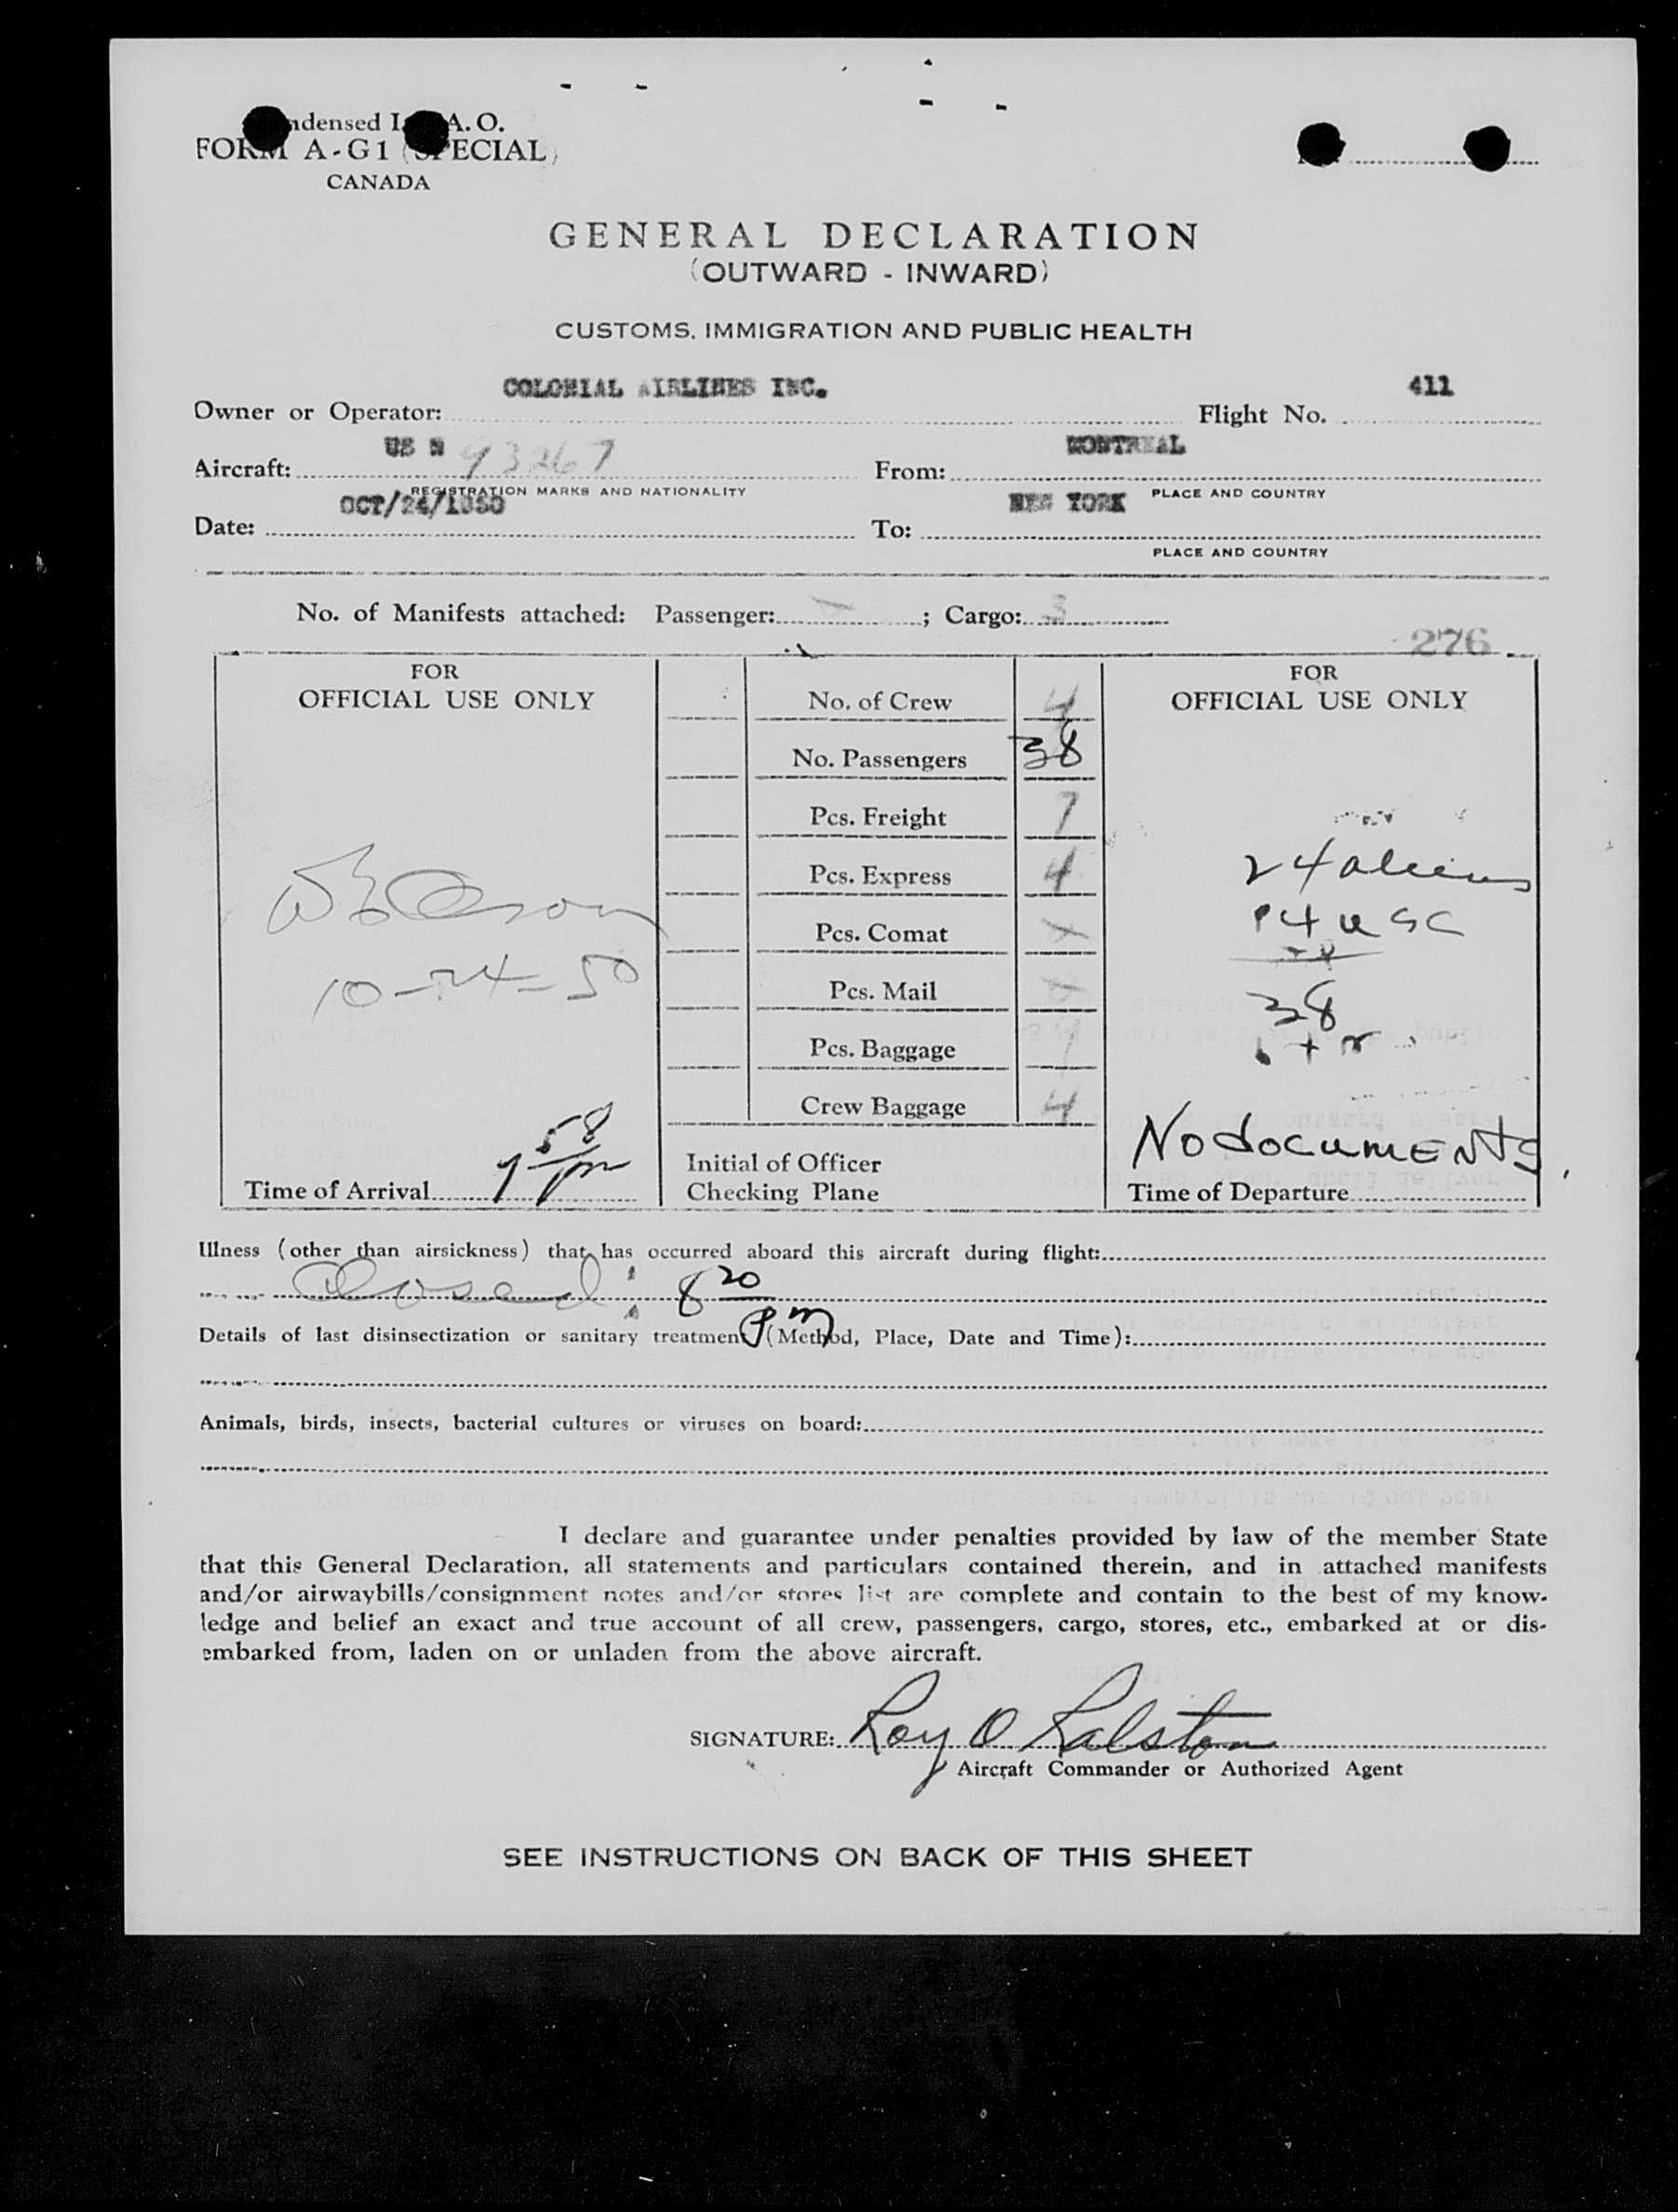 Condensed I.C.A.O.
FORM A-G1 (SPECIAL)
CANADA
GENERAL DECLARATION
(OUTWARD - INWARD)
CUSTOMS, IMMIGRATION AND PUBLIC HEALTH
Owner or Operator: COLONIAL AIRLINES INC. Flight No. 411
Aircraft: US N 93267 From: MONTREAL
REGISTRATION MARKS AND NATIONALITY PLACE AND COUNTRY
Date: OCT/24/1950 To: NEW YORK
PLACE AND COUNTRY
No. of Manifests attached: Passenger: ; Cargo: 3
276
FOR
OFFICIAL USE ONLY
10-24-50
Time of Arrival 7 58 pm
No. of Crew 4
No. Passengers 38
Pcs. Freight 7
Pcs. Express 4
Pcs. Comat
Pcs. Mail
Pcs. Baggage
Crew Baggage 4
Initial of Officer
Checking Plane
FOR
OFFICIAL USE ONLY
24 aliens
14 USC
38
No documents
Time of Departure
Illness (other than airsickness) that has occurred aboard this aircraft during flight:
Closed: 8 20 PM
Details of last disinsectization or sanitary treatment (Method, Place, Date and Time):
Animals, birds, insects, bacterial cultures or viruses on board:
I declare and guarantee under penalties provided by law of the member State
that this General Declaration, all statements and particulars contained therein, and in attached manifests
and/or airwaybills/consignment notes and/or stores list are complete and contain to the best of my know-
ledge and belief an exact and true account of all crew, passengers, cargo, stores, etc., embarked at or dis-
embarked from, laden on or unladen from the above aircraft.
SIGNATURE: Roy O Ralston
Aircraft Commander or Authorized Agent
SEE INSTRUCTIONS ON BACK OF THIS SHEET